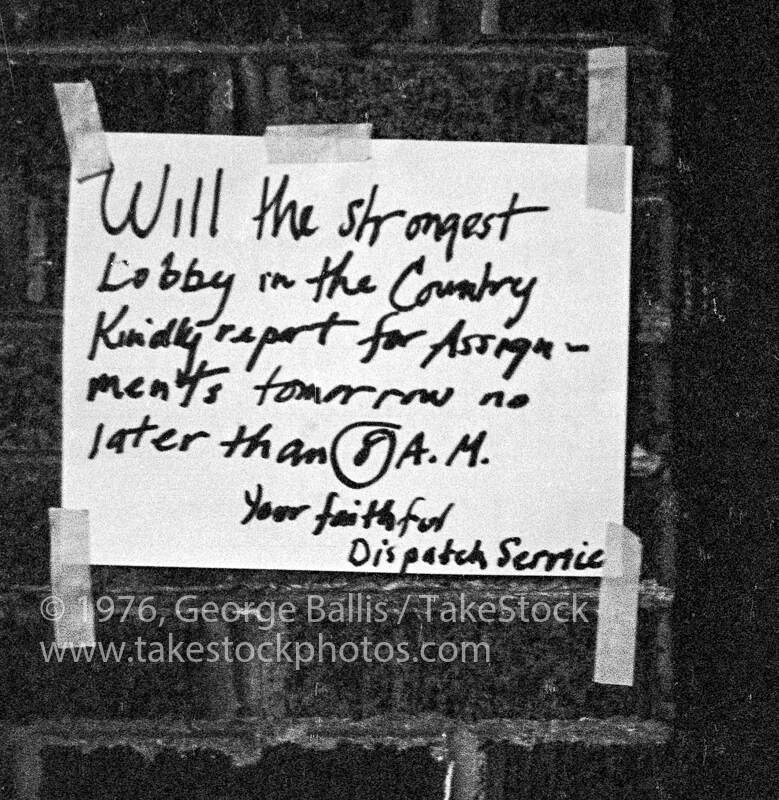 Will the strongest
Lobby in the Country
Kindly report for Assign-
ments tomorrow no
later than 8 A.M.
Your faithful
Dispatch Service
© 1976, George Ballis / TakeStock
www.takestockphotos.com